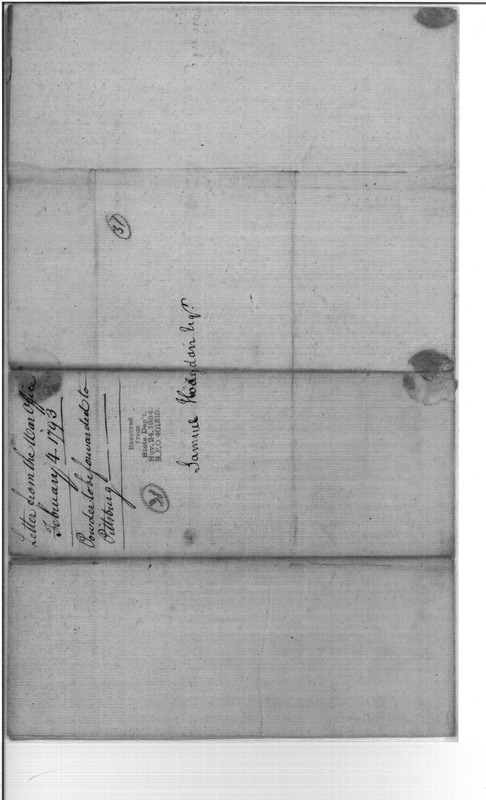 Letter from the War Office
February 4. 1793
Powder to be forwarded to
Pittsburg
Received
from
State Dep't.
Nov. 24, 1894.
R.P.O 401810.
(31)
(31)
Samuel Hodgdon Esqr.